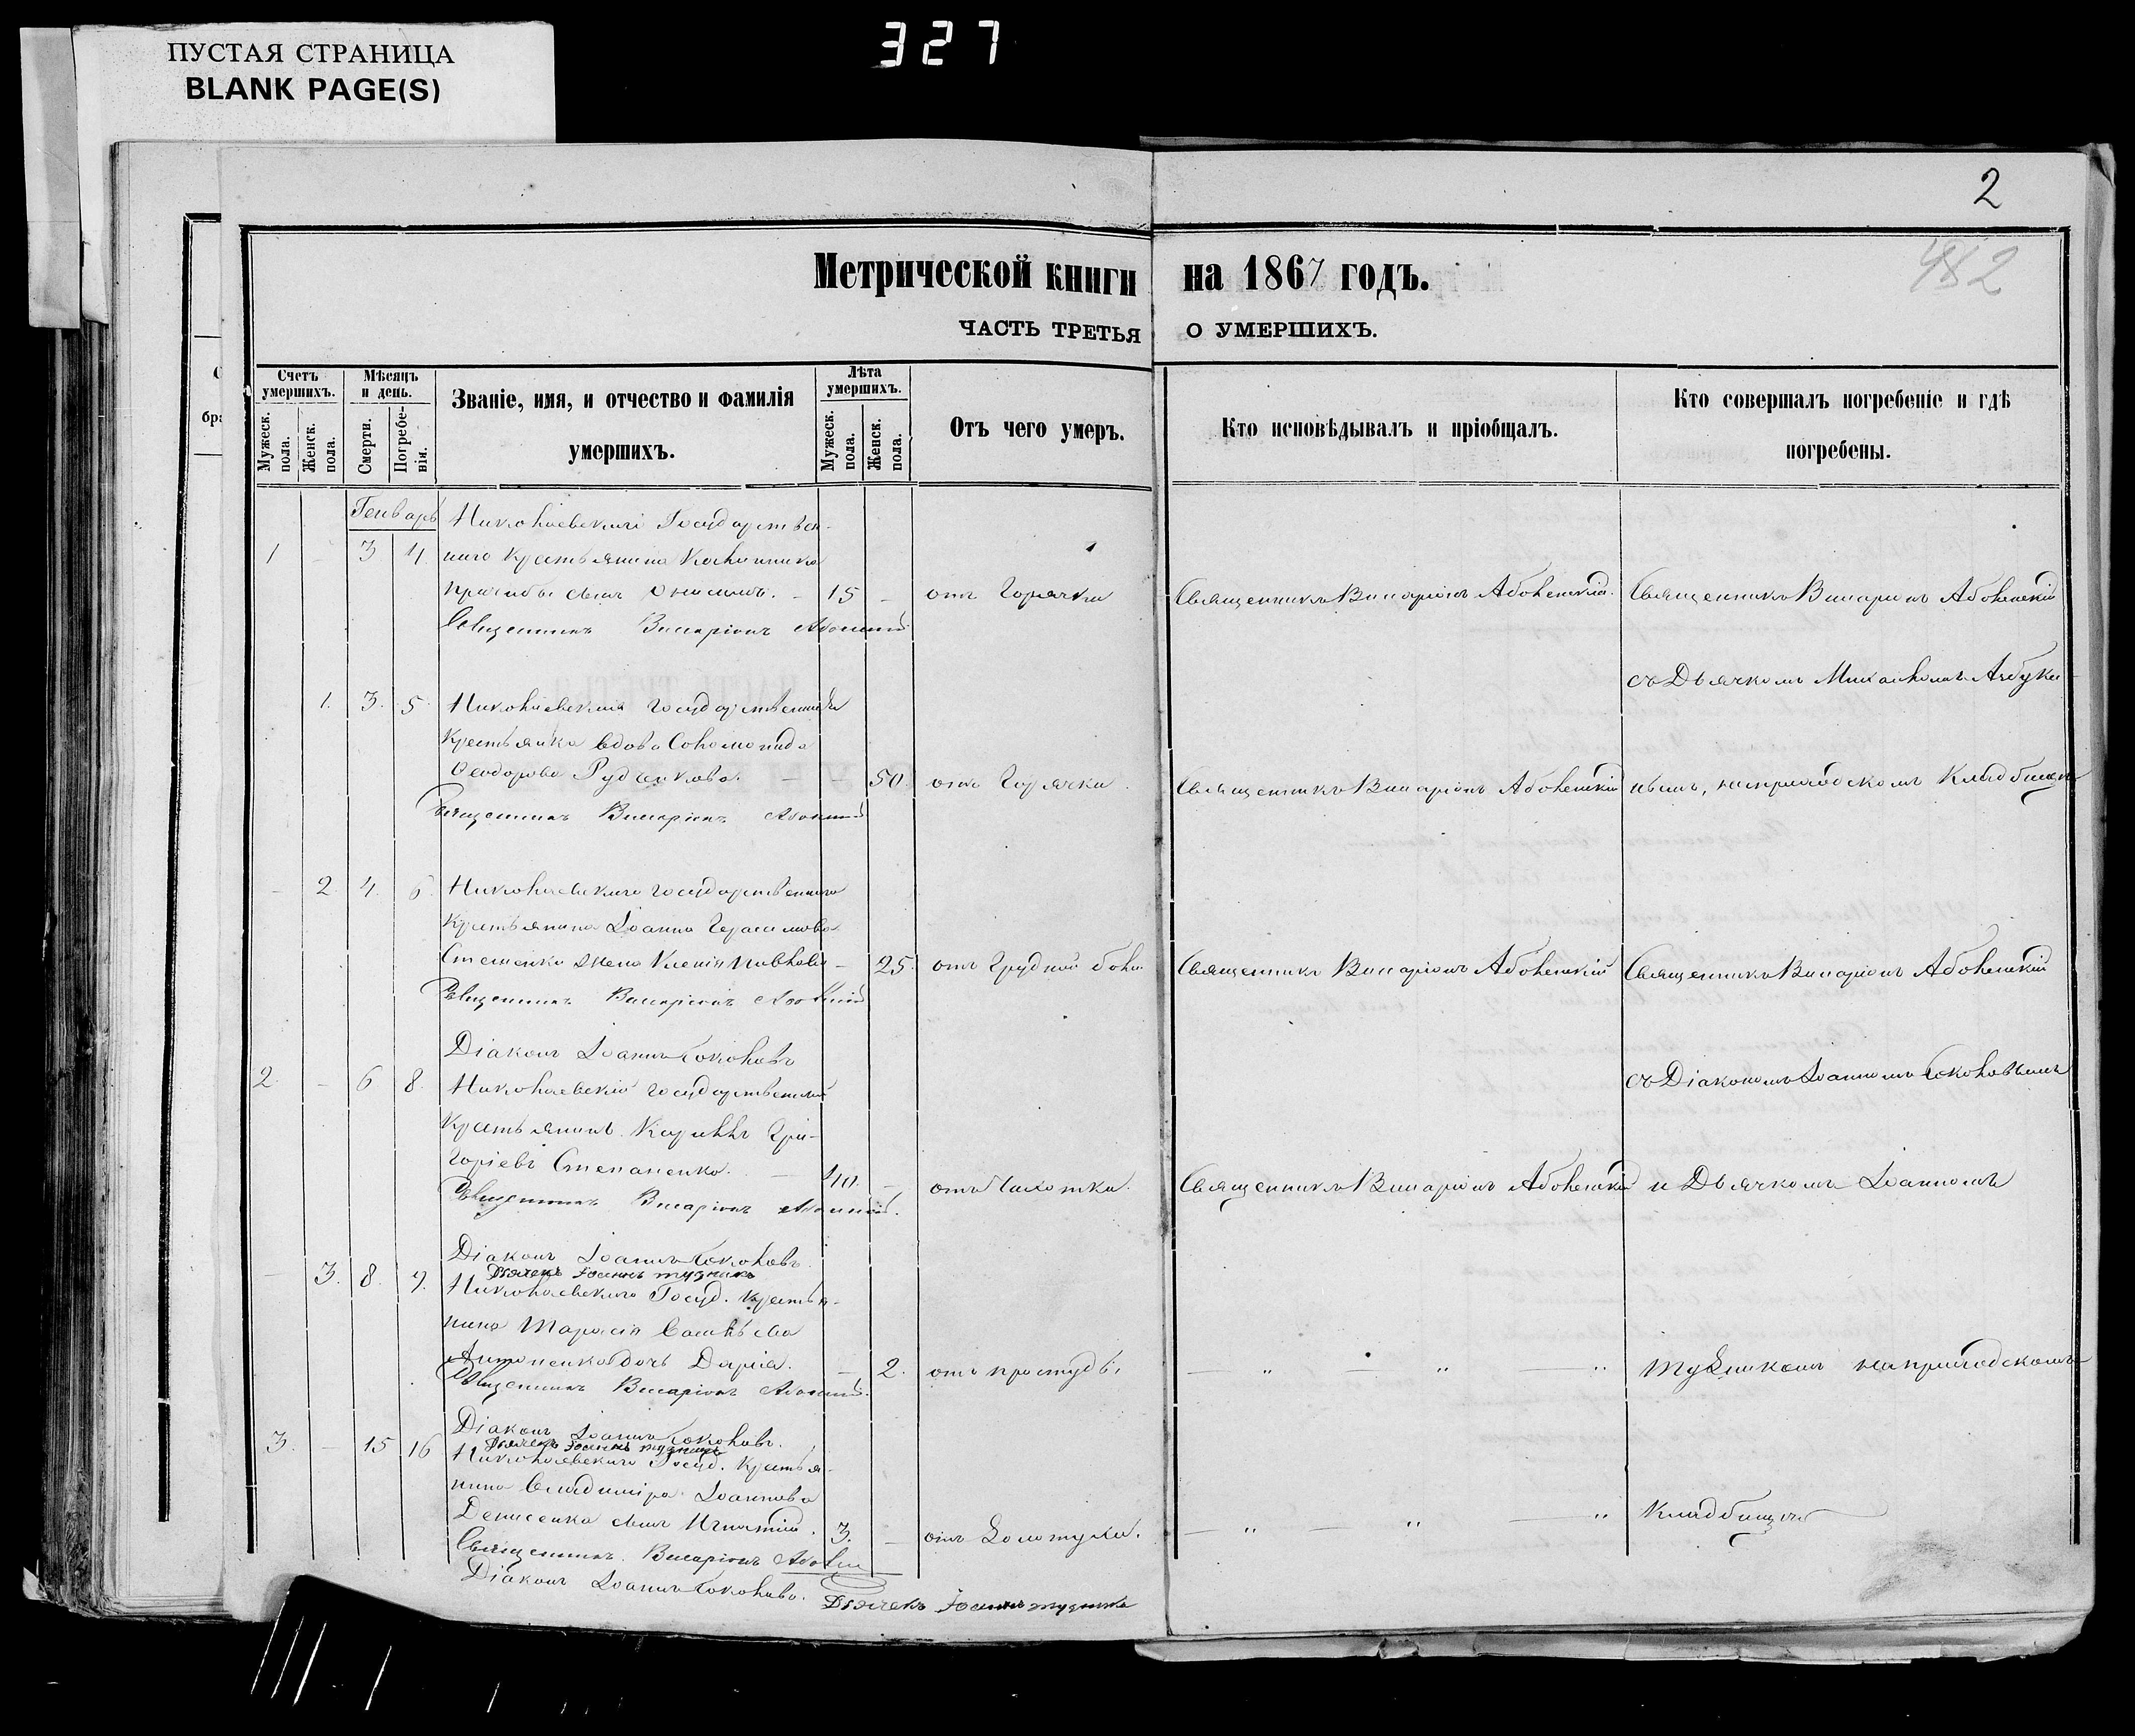 ПУСТАЯ СТРАНИЦА
BLANK PAGE(S)
327
2
482
Метрической книги на 1867 годъ.
ЧАСТЬ ТРЕТЬЯ О УМЕРШИХЪ.
Счетъ умершихъ.
Мужеск. пола.
Женск. пола.
Мѣсяцъ и день.
Смерти.
Погребенія.
Званіе, имя, и отчество и фамилія
умершихъ.
Лѣта умершихъ.
Мужеск. пола.
Женск. пола.
Отъ чего умеръ.
Кто исповѣдывалъ и пріобщалъ.
Кто совершалъ погребеніе и гдѣ
погребены.
Генварь
Николаевскаго Государствен-
1 - 3 4 наго крестьянина
сынъ Онисимъ. - 15 - отъ Горячки Священникъ Виссаріонъ Священникъ Виссаріонъ
Священникъ Виссаріонъ
съ Дьячкомъ Михаиломъ Азбуки-
1. 3. 5. Николаевская Государственная
крестьянка вдова Соломонида
Феодорова Рудчикова. - - 50. отъ Горячки. Священникъ Виссаріонъ нымъ, на приходскомъ Кладбищѣ
Священникъ Виссаріонъ
- 2. 4. 6. Николаевскаго государственнаго
крестьянина Іоанна Герасимова
жена Ксенія Павлова - 25. отъ Грудной боли Священникъ Виссаріонъ Священникъ Виссаріонъ
Священникъ Виссаріонъ
Діаконъ Іоаннъ Соколовъ
съ Діакономъ Іоанномъ Соколовымъ
2. - 6 8. Николаевскій государственный
крестьянинъ Кириллъ Гри-
горіевъ Степаненко. - 40. - отъ Чахотки. Священникъ Виссаріонъ и Дьячкомъ Іоанномъ
Священникъ Виссаріонъ
Діаконъ Іоаннъ Соколовъ.
Дьячекъ Іоаннъ
- 3. 8. 9. Николаевскаго Госуд. крестья-
нина Тарасія
Антоненко дочь Дарія. - 2. отъ простуды - " - " - " на приходскомъ
Священникъ Виссаріонъ
Діаконъ Іоаннъ Соколовъ.
Дьячекъ Іоаннъ
3. - 15 16 Николаевскаго Госуд. Крестья-
нина Владиміра Іоаннова
Денисенка сынъ Игнатій. 3. - отъ Золотухи. - " - " - " Кладбищѣ
Священникъ Виссаріонъ
Діаконъ Іоаннъ Соколовъ.
Дьячекъ Іоаннъ